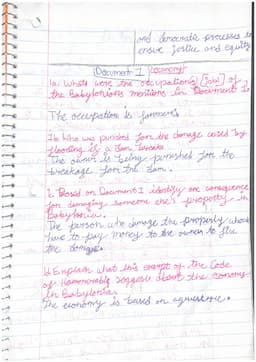 and democratic processes to
ensure justice and equity
Document 1 (economy)
1a. Whats were the occupation(s) (jobs) of
the Babylonians mentions in Document 1.
The occupation is farmers
1b. Who was punished for the damage caused by
flooding if a dam breaks
The owner is being punished for the
breakage for the dam.
Based on Document 1 identify one consequence
for damaging someone else's property in
Babylonia.
The person who damage the property would
have to pay money to the owner to fix
the damage.
Explain what this excerpt of the Code
of Hammurabi suggests about the economy
in Babylonia.
The economy is based on agriculture.